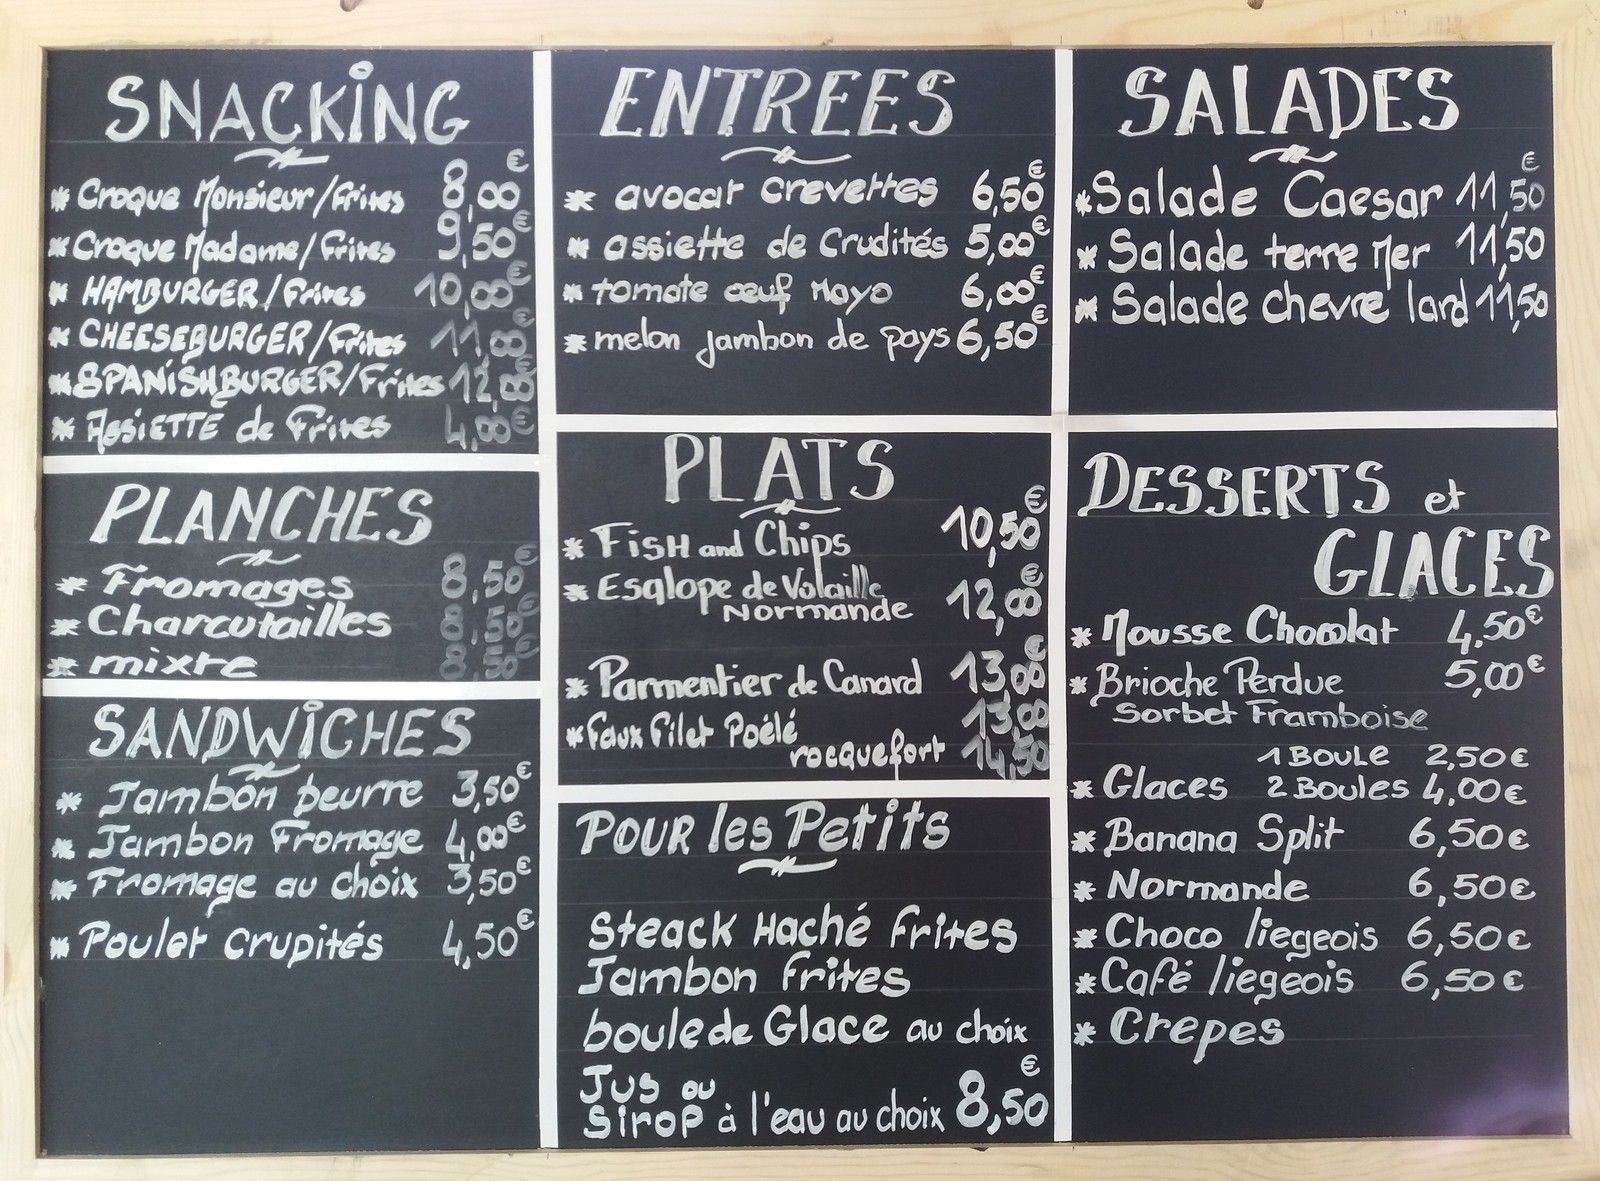 SNACKING
€
* Croque Monsieur/Frites 8,00
* Croque Madame/Frites 9,50€
* HAMBURGER/Frites 10,00€
* CHEESEBURGER/Frites 11,00€
* SPANISHBURGER/Frites 12,00€
* ASSIETTE de Frites 4,00€
PLANCHES
* Fromages 8,50€
* Charcutailles 8,50€
* mixte 8,50€
SANDWICHES
* Jambon beurre 3,50€
* Jambon Fromage 4,00€
* Fromage au choix 3,50€
* Poulet crupités 4,50€
ENTREES
* avocat crevettes 6,50€
* assiette de Crudités 5,00€
* tomate œuf Mayo 6,00€
* melon jambon de pays 6,50€
PLATS
* FISH and Chips 10,50€
* Esqlope de Volaille 12,00€
Normande
* Parmentier de Canard 13,00€
* Faux Filet Poêlé 13,00
rocquefort 14,50
POUR les Petits
Steack Haché frites
Jambon frites
boule de Glace au choix
Jus ou
Sirop à l'eau au choix 8,50€
SALADES
€
* Salade Caesar 11,50
* Salade terre Mer 11,50
* Salade chevre lard 11,50
DESSERTS et
GLACES
* Mousse Chocolat 4,50€
* Brioche Perdue 5,00€
Sorbet Framboise
1 BOULE 2,50€
* Glaces 2 BOULES 4,00€
* Banana Split 6,50€
* Normande 6,50€
* Choco liegeois 6,50€
* Café liegeois 6,50€
* Crepes